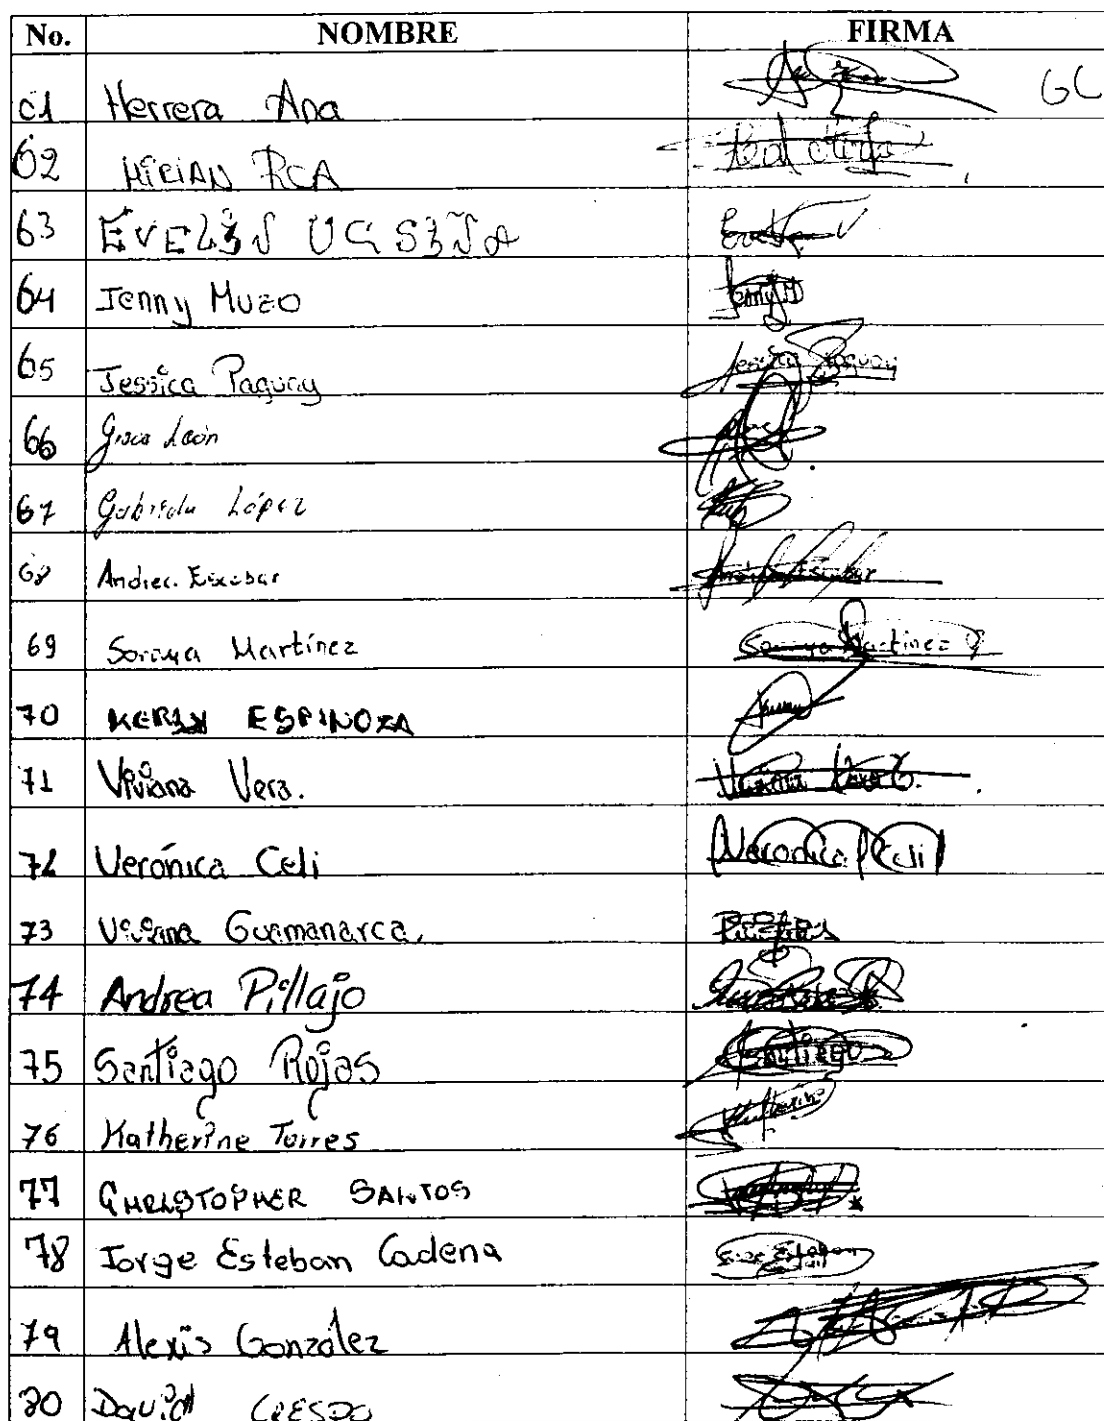 No. NOMBRE FIRMA
61 Herrera Ana GC
62 MIRIAN ROA
63 EVELIN UGSIÑA Evelin U
64 Jenny Muzo Jenny M
65 Jessica Paguay Jessica Paguay
66 León
67 Gabriela López
68 Andrea Escobar Andrea Escobar
69 Soraya Martínez Soraya Martinez
70 KERLY ESPINOZA
71 Viviana Vera. Viviana Vera
72 Verónica Celi Veronica Celi
73 Viviana Guamanarca,
74 Andrea Pillajo
75 Santiago Rojas Santiago
76 Katherine Torres Katherine
77 CHRISTOPHER SANTOS
78 Jorge Esteban Cadena Jorge Esteban
79 Alexis González
80 David CRESPO